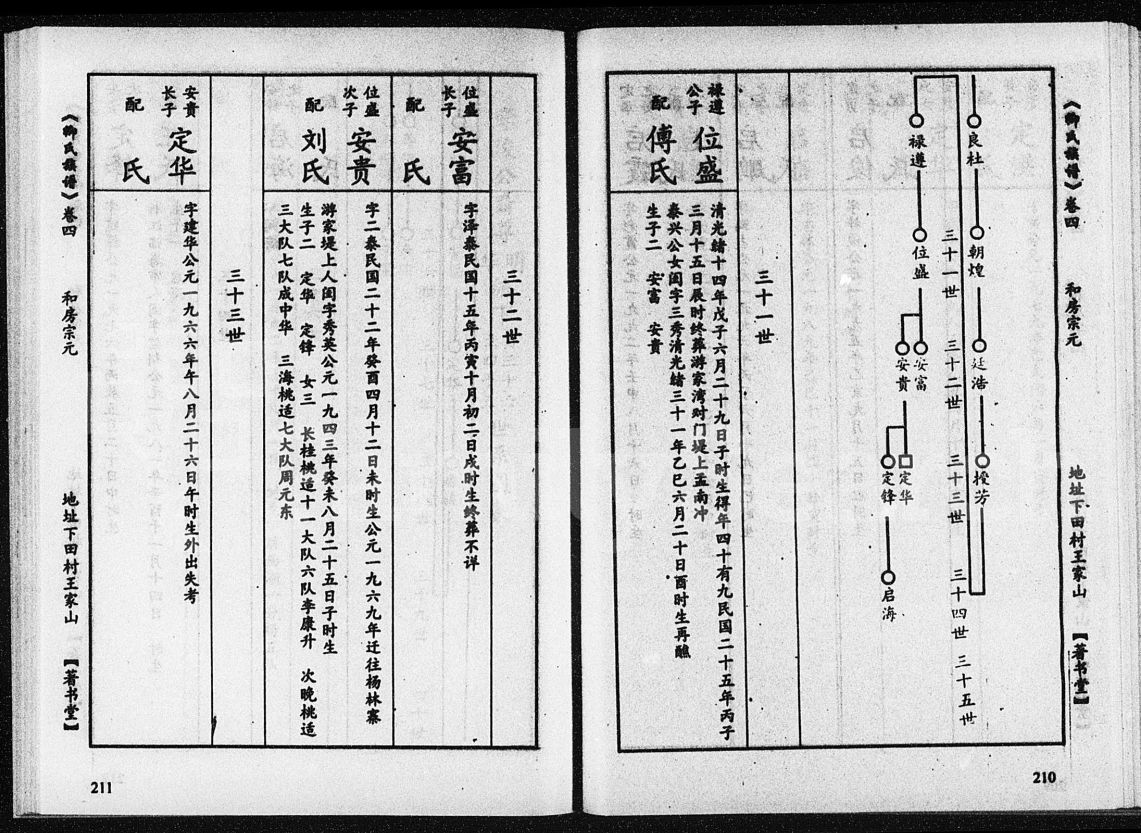 《柳氏族谱》卷四 和房宗元 地址下田村王家山 【著书堂】
210
良杜
朝煌
廷浩
授芳
禄遵
位盛
安富
安贵
定华
定锋
启海
三十一世 三十二世 三十三世 三十四世 三十五世
三十一世
禄遵公子 位盛
清光绪十四年戊子六月二十九日子时生得年四十有九民国二十五年丙子
三月十五日辰时终葬游家湾对门堤上孟南冲
配 傅氏
泰兴公女闺字三秀清光绪三十一年乙巳六月二十日酉时生再醮
生子二 安富 安贵
三十二世
位盛长子 安富
字泽泰民国十五年丙寅十月初二日戌时生终葬不详
配 氏
位盛次子 安贵
字二泰民国二十二年癸酉四月十二日未时生公元一九六九年迁往杨林寨
配 刘氏
游家堤上人闺字秀英公元一九四三年癸未八月二十五日子时生
生子二 定华 定锋 女三 长桂桃适十一大队六队李康升 次晚桃适
三大队七队成中华 三海桃适七大队周元东
三十三世
安贵长子 定华
字建华公元一九六六年午八月二十六日午时生外出失考
配 氏
《柳氏族谱》卷四 和房宗元 地址下田村王家山 【著书堂】
211